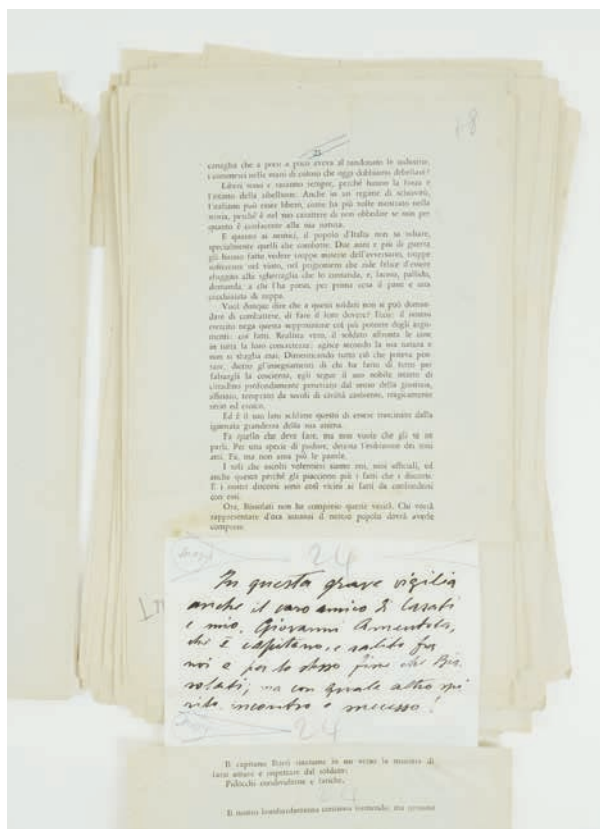 25
18
consiglia che a poco a poco aveva abbandonato le industrie,
i commerci nelle mani di coloro che oggi dobbiamo debellare?
Liberi sono e saranno sempre, perché hanno la forza e
l'istinto della ribellione. Anche in un regime di schiavitù,
l'italiano può esser libero, come ha più volte mostrato nella
storia, perché è nel suo carattere di non obbedire se non per
quanto è confacente alla sua natura.
E quanto ai nemici, il popolo d'Italia non sa odiare,
specialmente quelli che combatte. Due anni e più di guerra
gli hanno fatto vedere troppe miserie dell'avversario, troppe
sofferenze nel vinto, nel prigioniero che ride felice d'essere
sfuggito alla sbirraglia che lo comanda, e, lacero, pallido,
domanda, a chi l'ha preso, per prima cosa il pane e una
cucchiaiata di zuppa.
Vuol dunque dire che a questi soldati non si può doman-
dare di combattere, di fare il loro dovere? Ecco: il nostro
esercito nega questa supposizione col più potente degli argo-
menti: coi fatti. Realista vero, il soldato affronta le cose
in tutta la loro concretezza; agisce secondo la sua natura e
non si sbaglia mai. Dimenticando tutto ciò che poteva pen-
sare, dietro gl'insegnamenti di chi ha fatto di tutto per
falsargli la coscienza, egli segue il suo nobile istinto di
cittadino profondamente penetrato dal senso della giustizia,
affinato, temprato da secoli di civiltà cosciente, tragicamente
serio ed eroico.
Ed è il suo lato sublime questo di essere trascinato dalla
ignorata grandezza della sua anima.
Fa quello che deve fare, ma non vuole che gli se ne
parli. Per una specie di pudore, detesta l'esibizione dei suoi
atti. Fa, ma non ama più le parole.
I soli che ascolti volentieri siamo noi, suoi ufficiali, ed
anche questo perché gli piacciono più i fatti che i discorsi.
E i nostri discorsi sono così vicini ai fatti da confondersi
con essi.
Ora, Bissolati non ha compreso queste verità. Chi vorrà
rappresentare d'ora innanzi il nostro popolo dovrà averle
comprese.
24
In questa grave vigilia
anche il caro amico di Casati
e mio, Giovanni Amendola,
che è capitano, è salito fra
noi e per lo stesso fine che Bis
solati; ma con quale altro spi
rito, incontro e successo!
24
Il capitano Borri riassume in un verso la maniera di
farsi amare e rispettare dal soldato:
Pidocchi condividerne e fatiche.
24
Il nostro bombardamento continua tremendo; ma nessuno